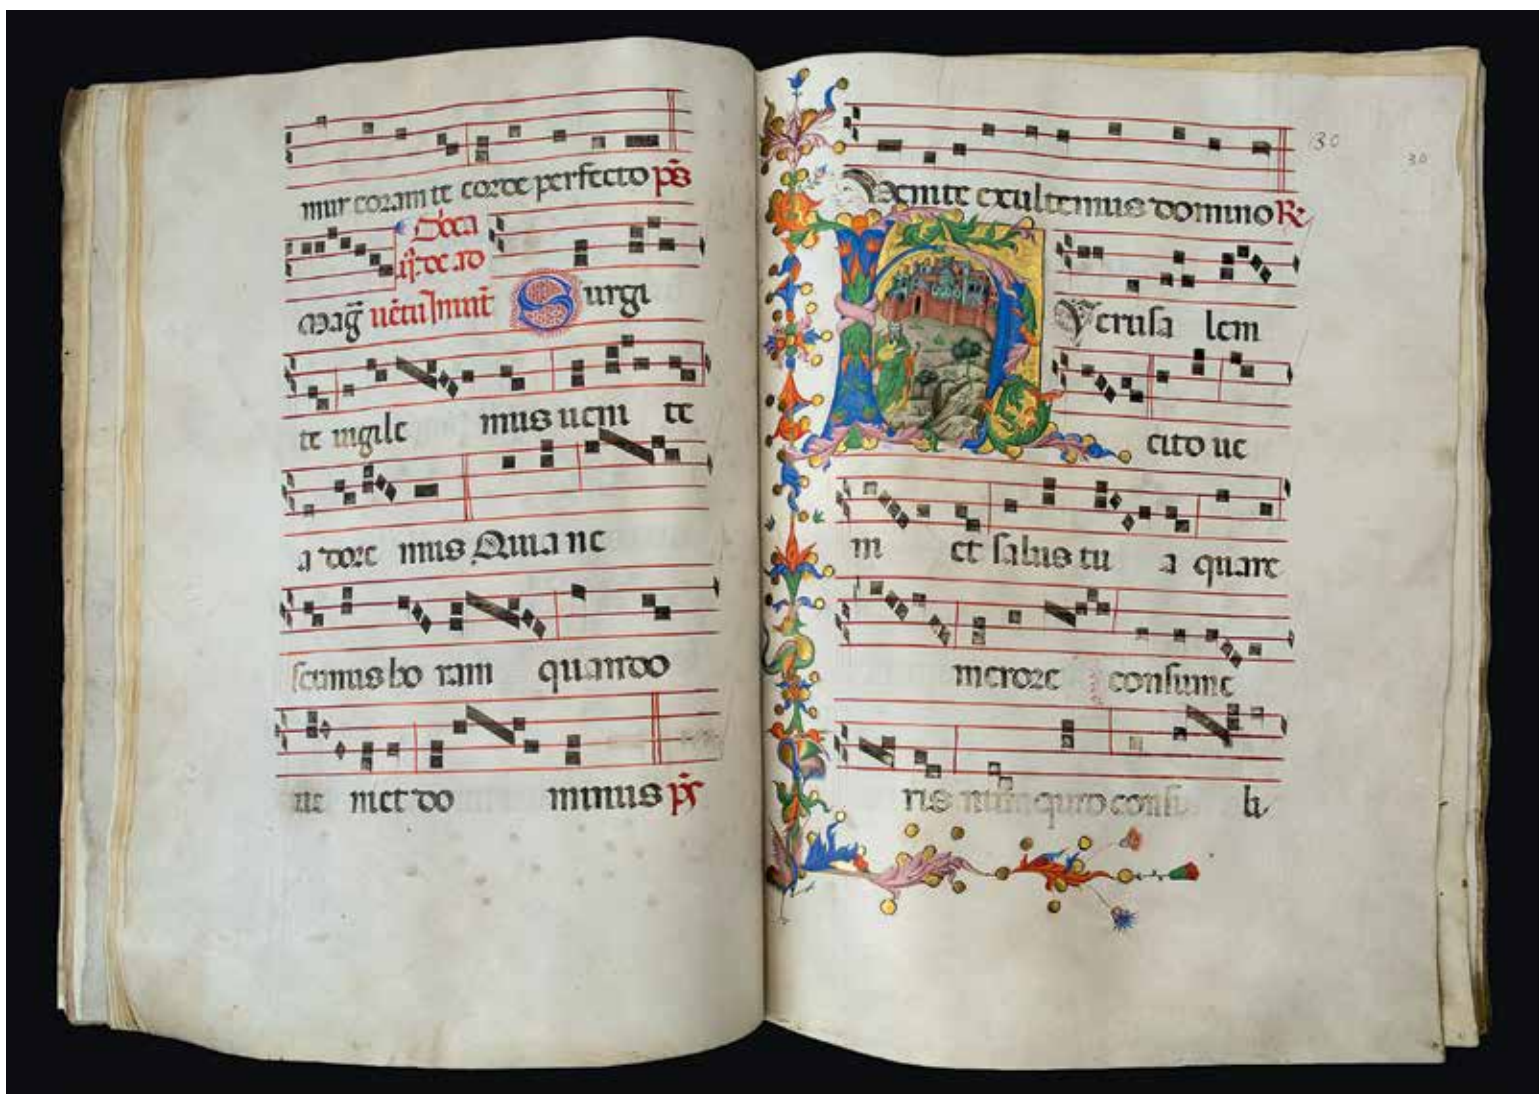 mur coram te corde perfecto p̃s
Mag̃
uẽtu Inuit̃
Surgi
te uigile mus ueni te
a dore mus Quia ne
scimus ho ram quando
ue niet do minus p̃s
30
30
Uenite exultemus domino R
Yerusa lem
cito ue
ni et salus tu a quare
merore consume
ris num quid consi li